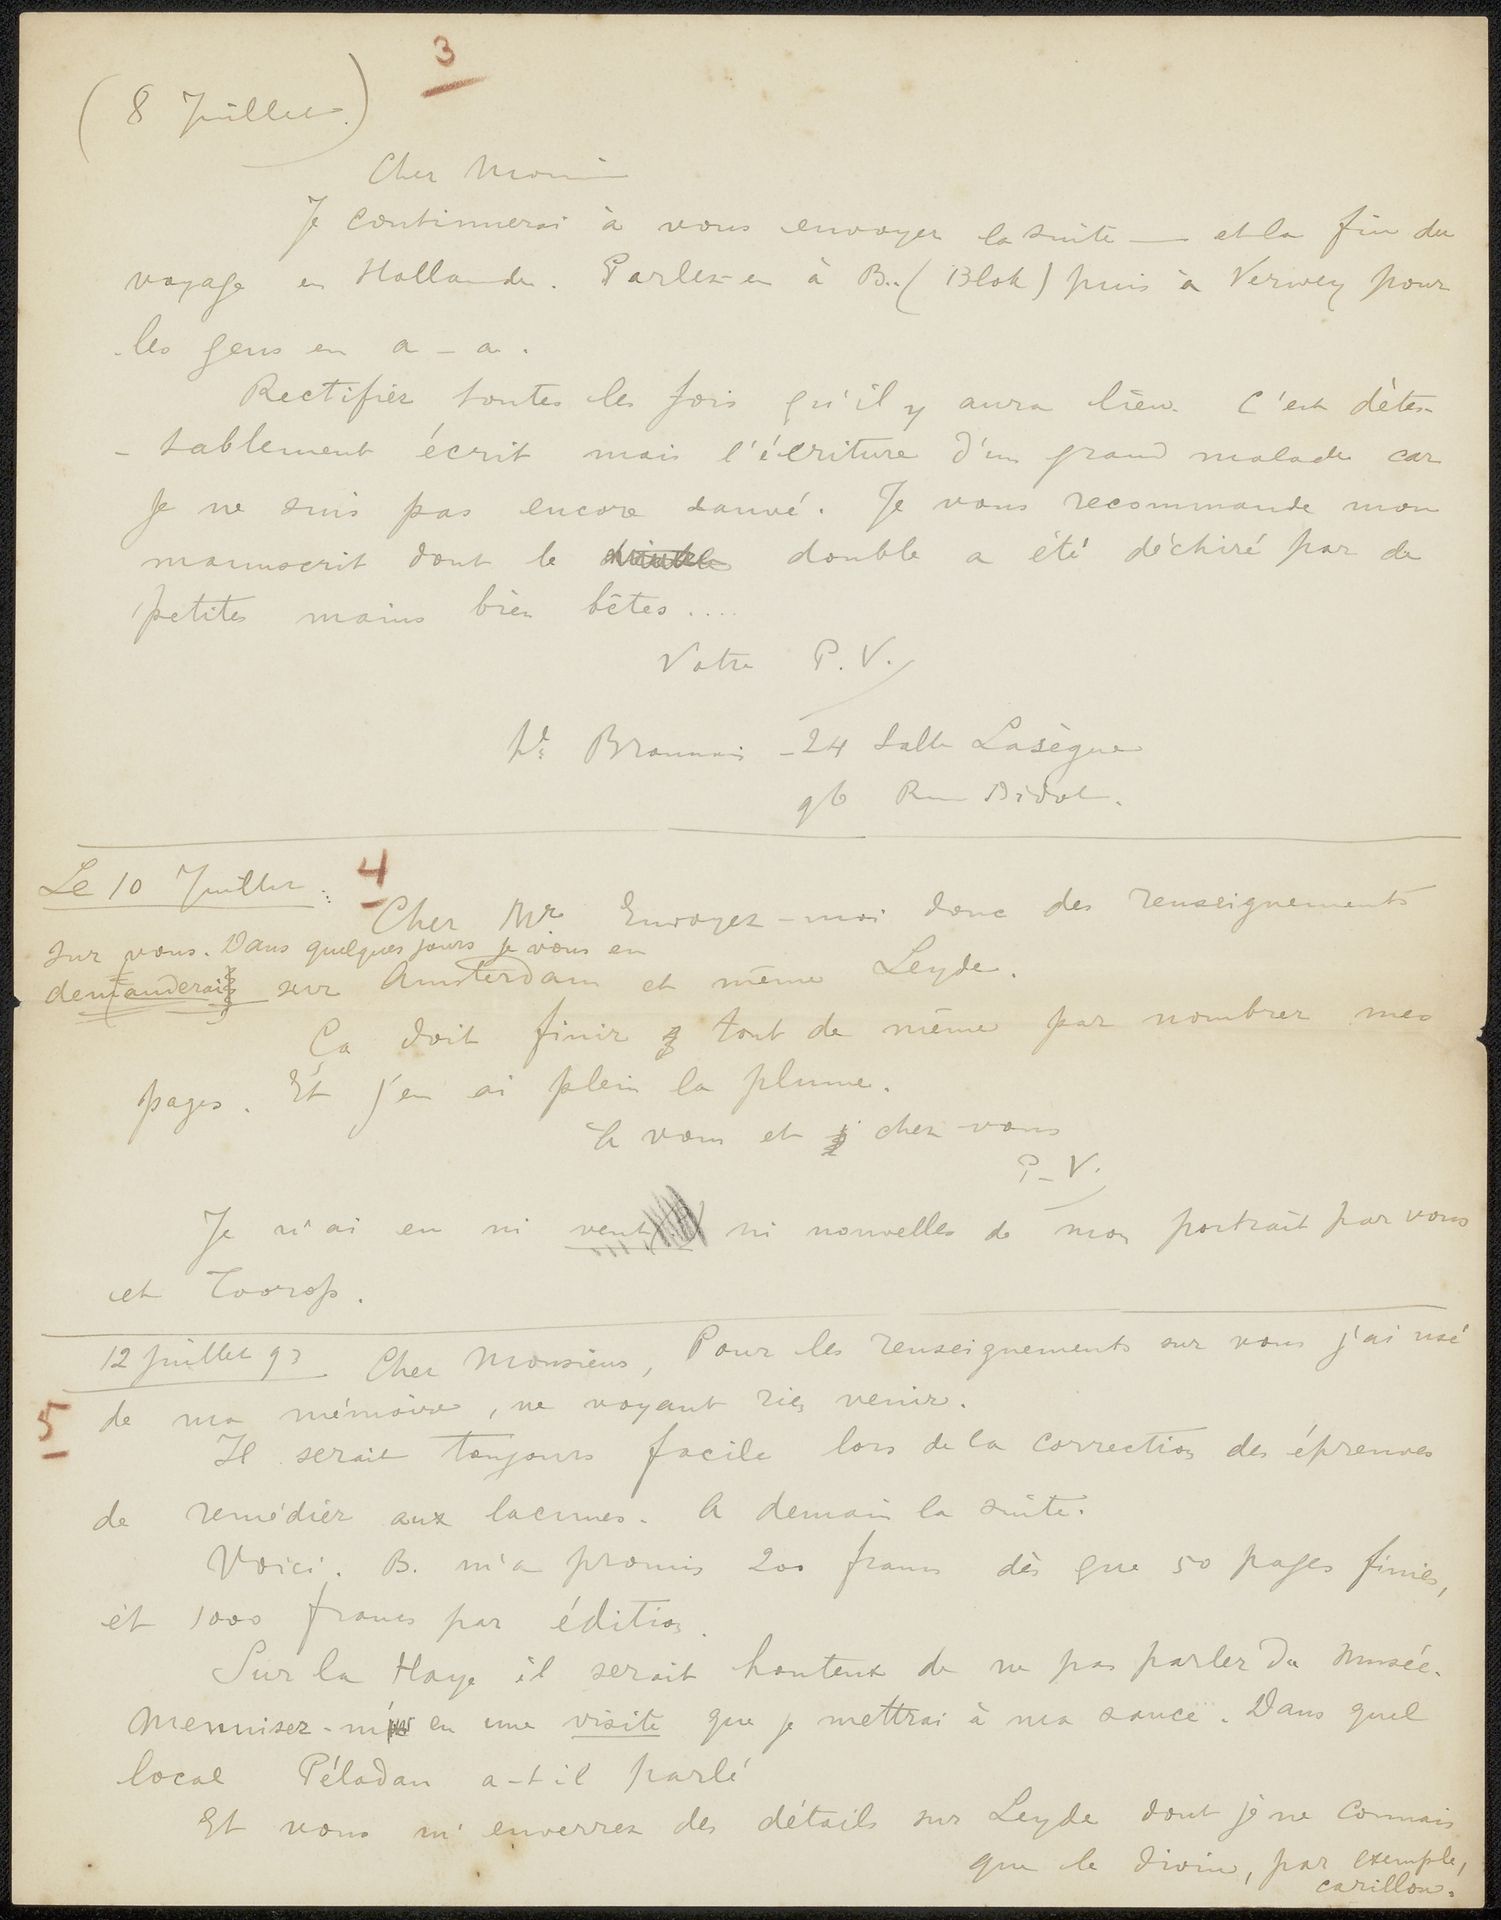 3
(8 Juillet.)
Cher Monsi
Je continuerai à vous envoyer la suite — et la fin du
voyage en Hollande. Parlez-en à B.. (Blok) puis à Verwey pour
les gens en a - a.
Rectifier toutes les fois qu'il y aura lieu. C'est détes-
- tablement écrit mais l'écriture d'un grand malade car
je ne suis pas encore sauvé. Je vous recommande mon
manuscrit dont le double a été déchiré par de
petites mains bien bêtes ....
Votre P. V.
hl Broussais - 24 Salle Lasègue
96 Rue Didot.
Le 10 Juillet : 4
Cher Mr Envoyez-moi donc des renseignements
sur vous. Dans quelques jours je vous en
demanderai sur Amsterdam et même Leyde.
Ça doit finir tout de même par nombrer mes
pages. Et j'en ai plein la plume.
A vous et chez vous
P. V.
Je n'ai eu ni vent ni nouvelles de mon portrait par vous
et Toorop.
12 juillet 93 Cher Monsieur, Pour les renseignements sur vous j'ai usé
5 de ma mémoire, ne voyant rien venir.
Il serait toujours facile lors de la correction des épreuves
de remédier aux lacunes. A demain la suite.
Voici. B. m'a promis 200 francs dès que 50 pages finies,
et 1000 francs par édition.
Sur la Haye il serait honteux de ne pas parler du Musée.
Menuisez-m'en une visite que je mettrai à ma sauce. Dans quel
local Péladan a-t-il parlé
Et vous m'enverrez des détails sur Leyde dont je ne connais
que le divin, par exemple,
carillon.